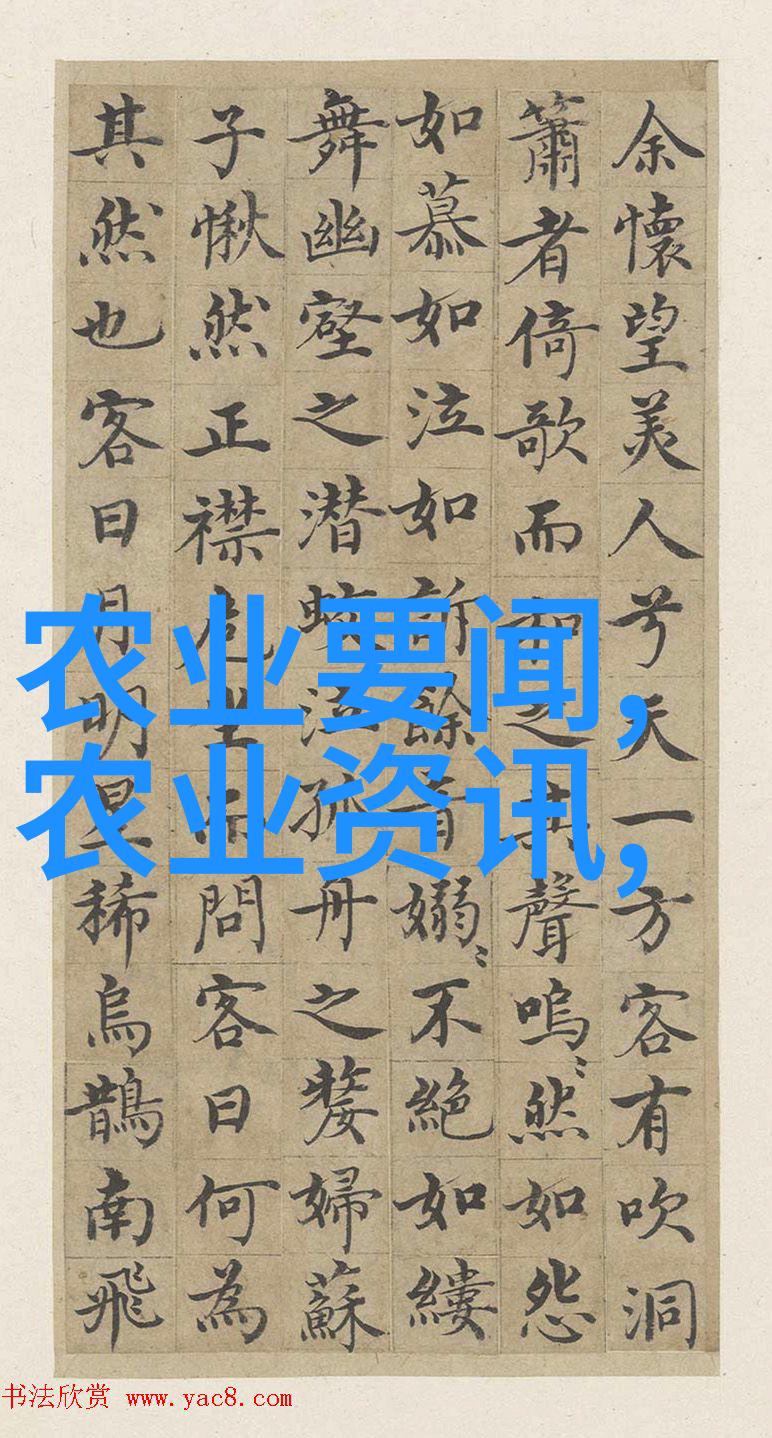 余懷望美人兮天一方客有吹洞
簫者倚歌而和之其聲嗚〻然如怨
如慕如泣如訴餘音嫋〻不絶如縷
舞幽壑之潜蛟泣孤舟之嫠婦蘇
子愀然正襟危坐而問客曰何為
其然也客曰月明星稀烏鵲南飛
农业要闻,
农业资讯,
书法欣赏 www.yac8.com